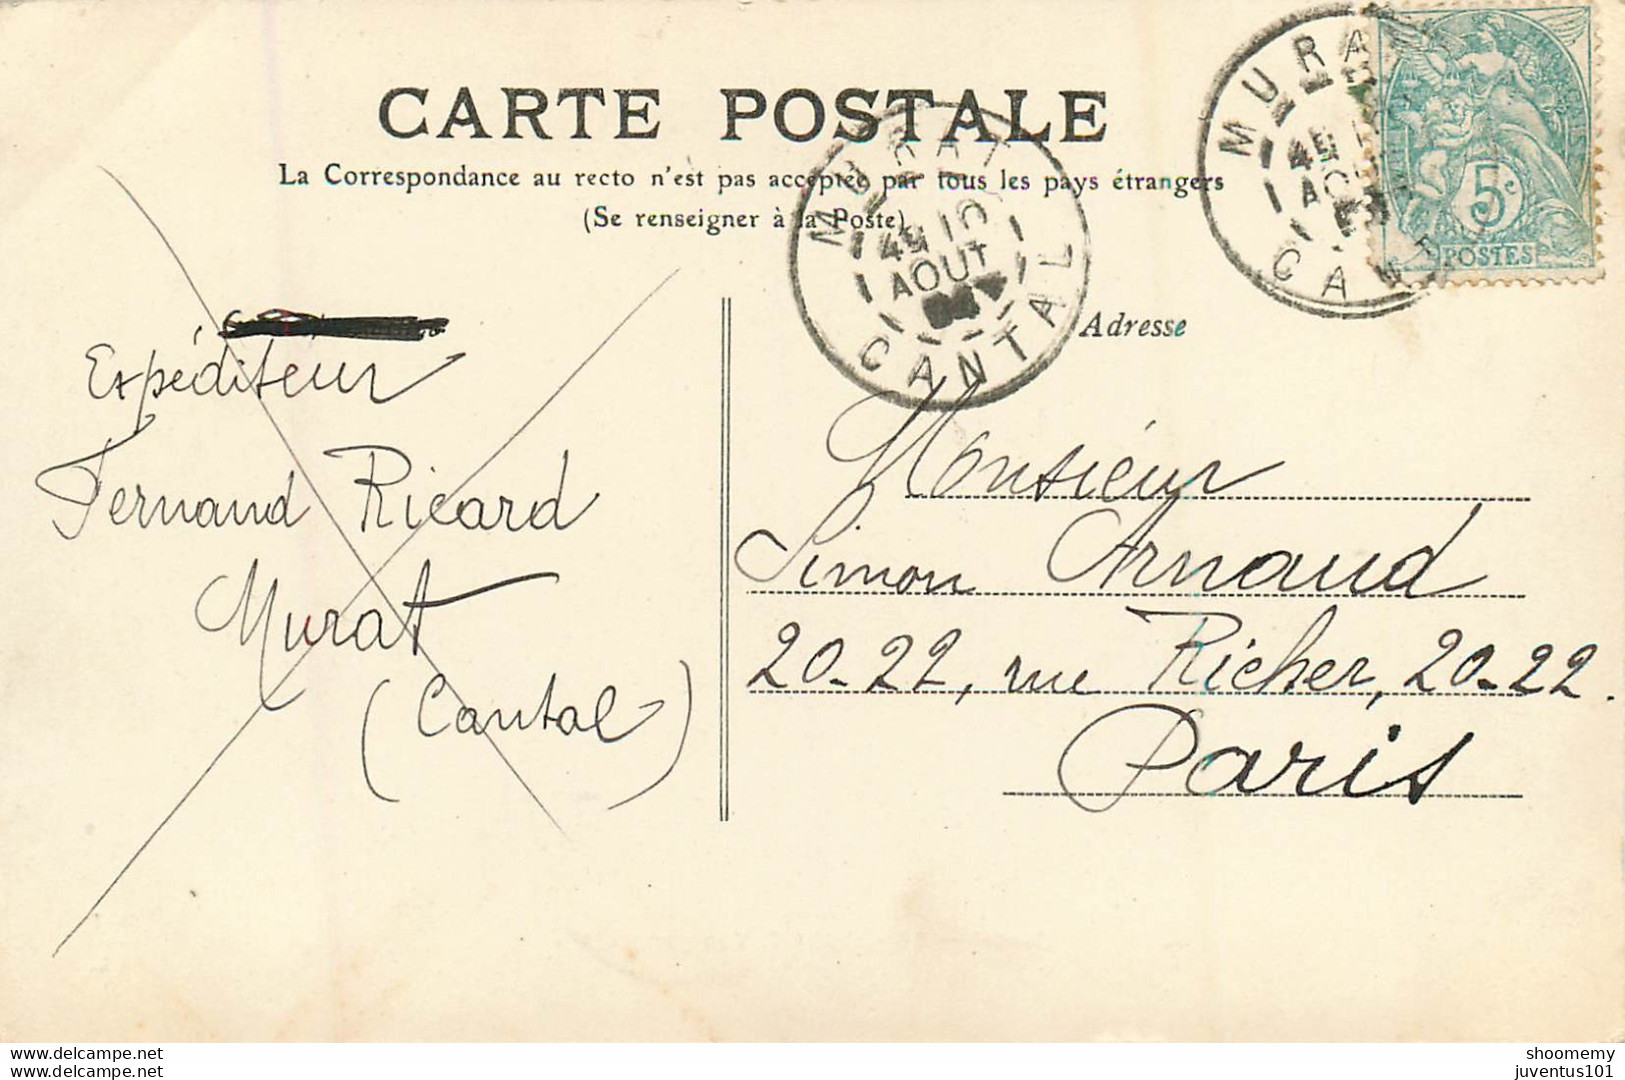 CARTE POSTALE
La Correspondance au recto n'est pas acceptée par tous les pays étrangers
(Se renseigner à la Poste)
MURAT
10
AOUT
CANTAL
MURA
CAN
5c
POSTES
Adresse
Expéditeur
Fernand Ricard
Murat
(Cantal)
Monsieur
Simon Arnaud
20-22, rue Richer, 20-22.
Paris
www.delcampe.net
www.delcampe.net
shoomemy
juventus101